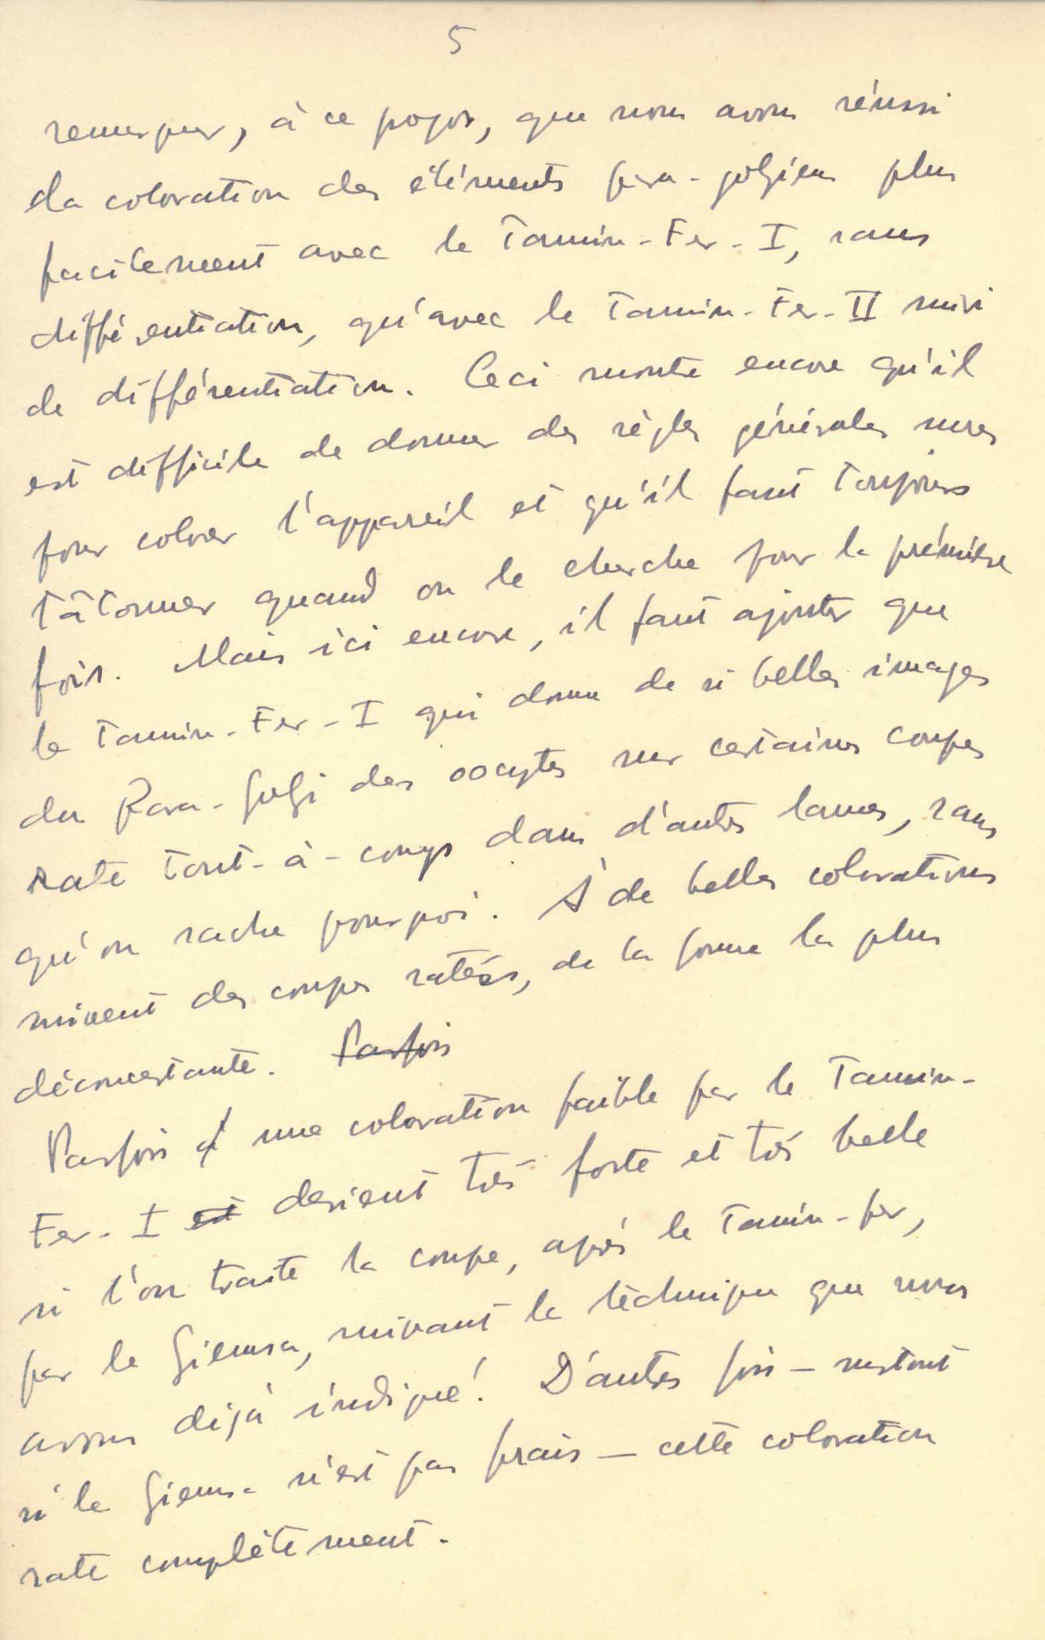 5
remarquer, à ce propos, que nous avons réussi
la coloration des éléments para-golgiens plus
facilement avec le Tannin-Fer-I, sans
différentiation, qu'avec le Tannin-Fer-II suivi
de différentiation. Ceci montre encore qu'il
est difficile de donner des règles générales
pour colorer l'appareil et qu'il faut toujours
tâtonner quand on le cherche pour la première
fois. Mais ici encore, il faut ajouter que
le Tannin-Fer-I qui donne de si belles images
du Para-Golgi des oocytes sur certaines coupes
rate tout-à-coup dans d'autres lames, sans
qu'on sache pourquoi. A de belles colorations
suivent des coupes ratées, de la forme la plus
déconcertante. Parfois
Parfois une coloration faible par le Tannin-
Fer-I est devient très forte et très belle
si l'on traite la coupe, après le Tannin-fer,
par le Giemsa, suivant la téchnique que nous
avons déjà indiqué. D'autres fois – surtout
si le Giemsa n'est pas frais – cette coloration
rate complètement.